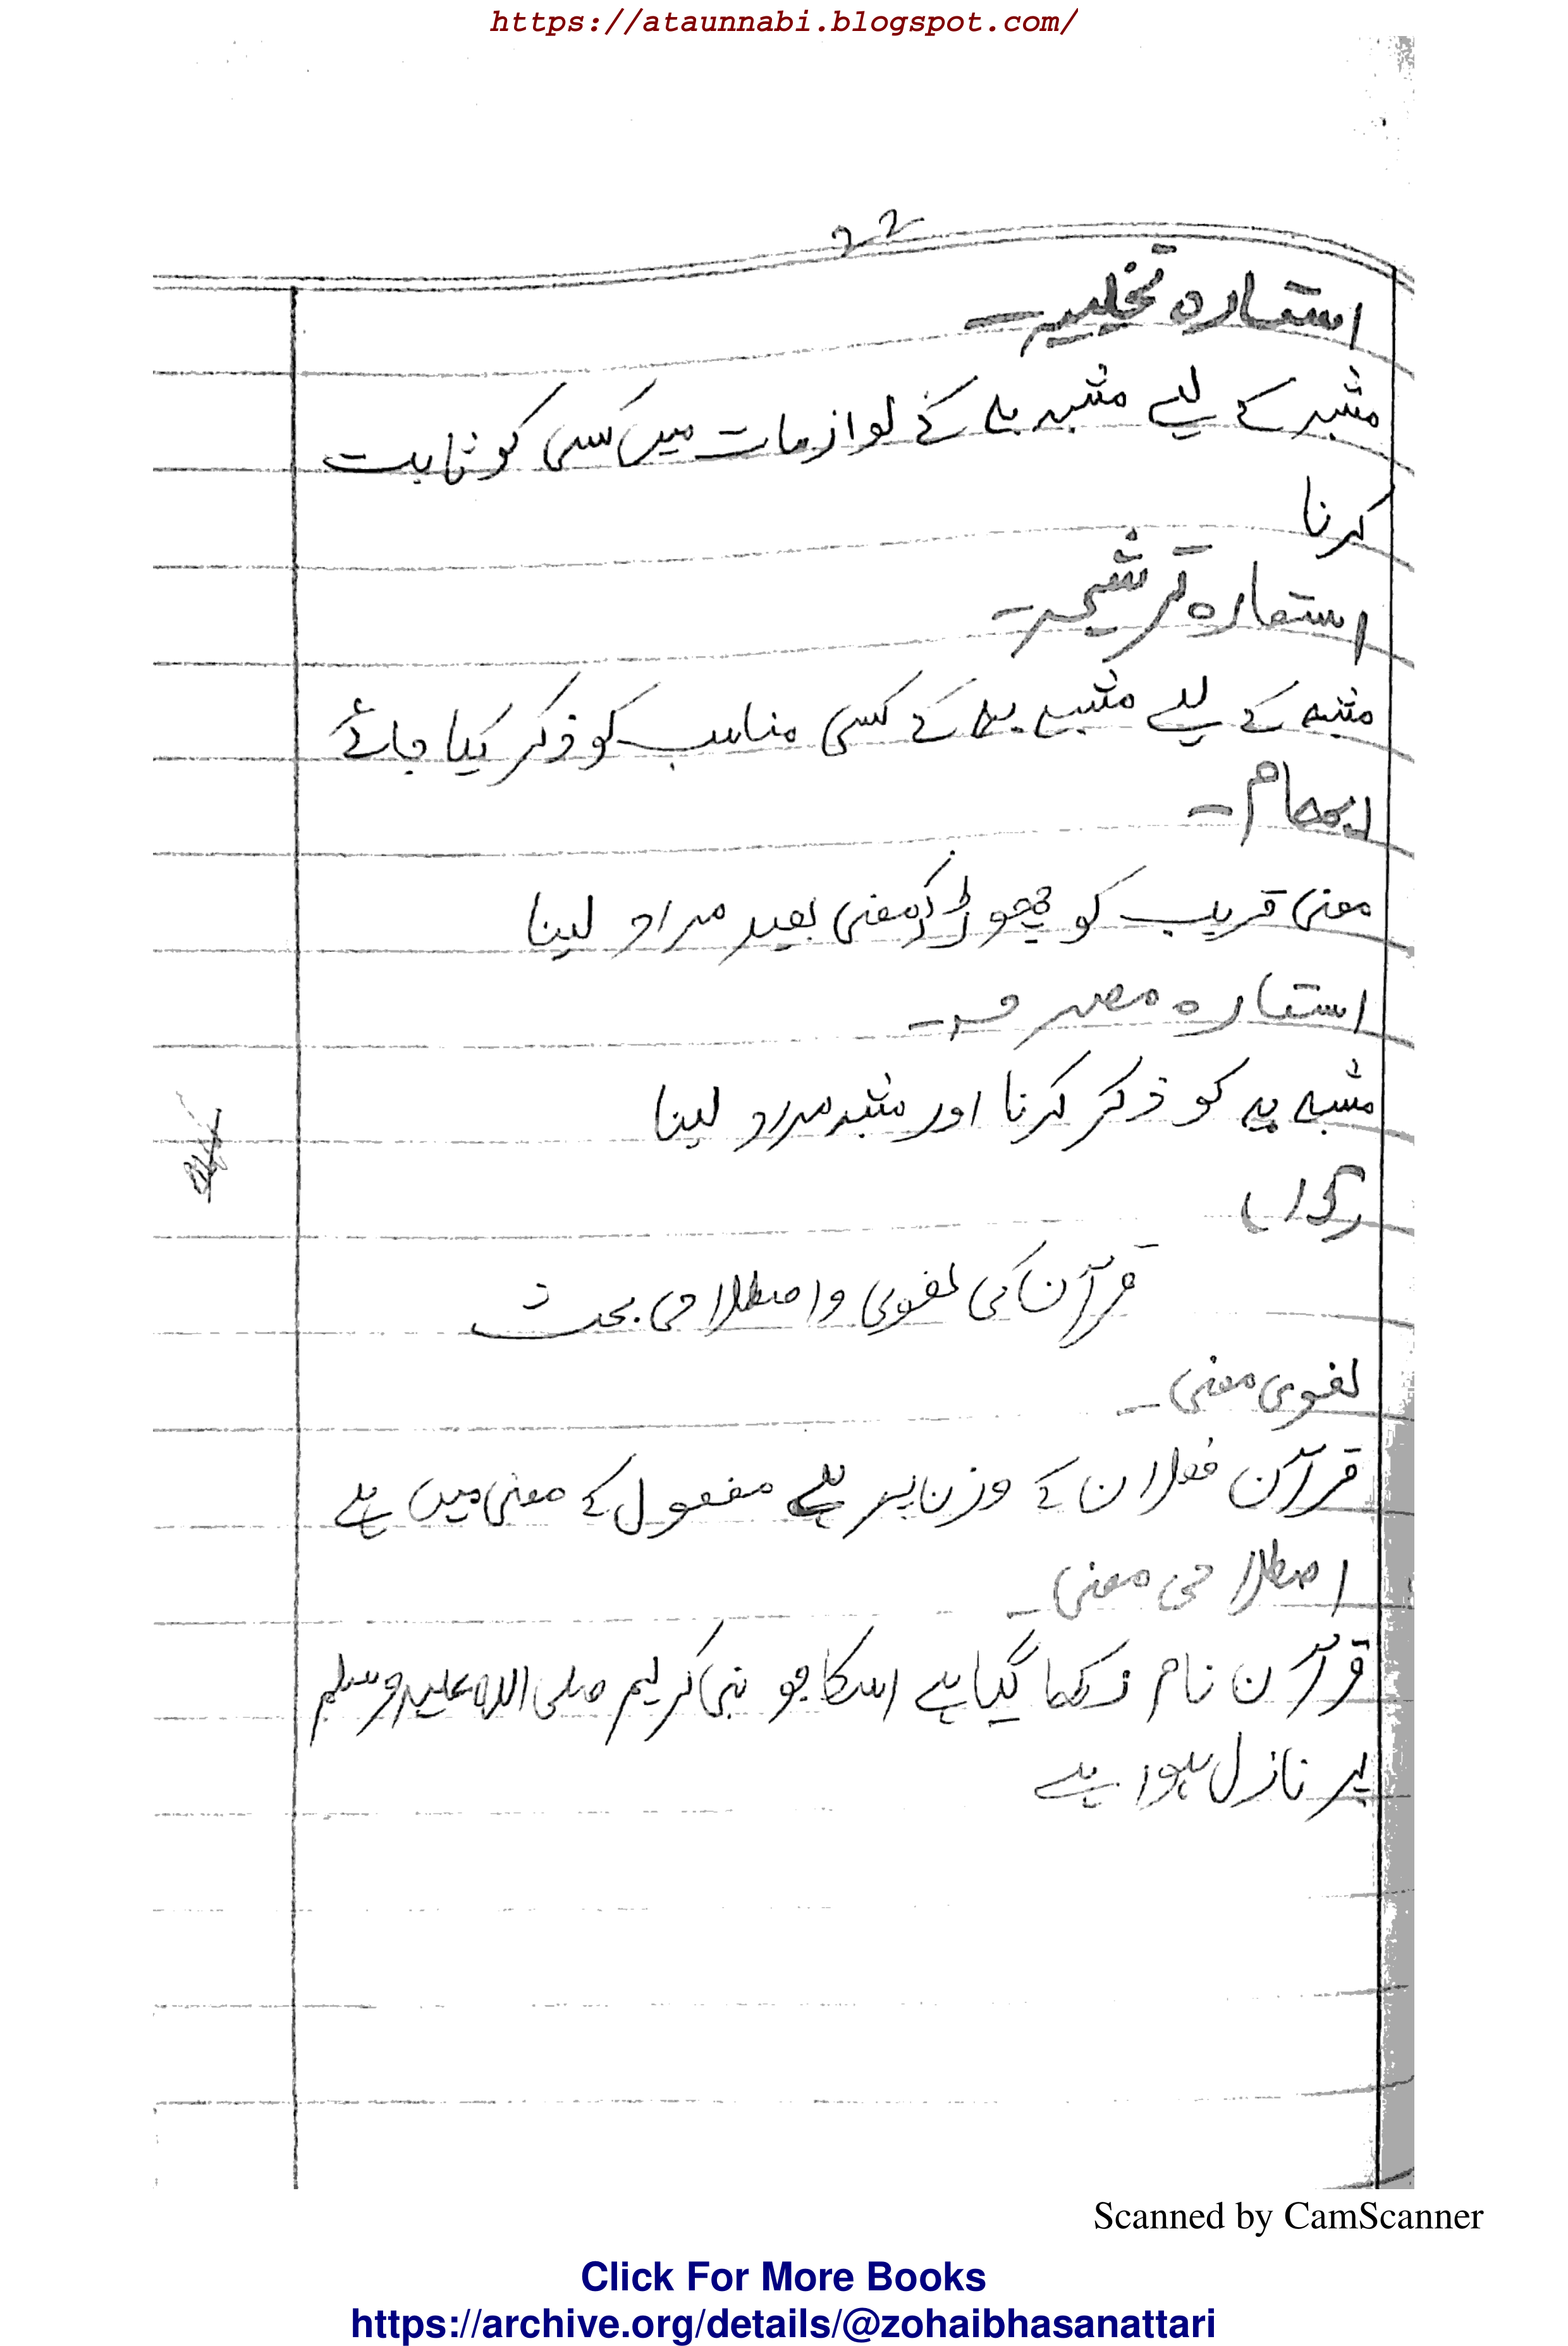 https://ataunnabi.blogspot.com/
استعارہ تخیلیہ۔
مشبہ کے لیے مشبہ بہ کے لوازمات میں کسی کو ثابت
کرنا
استعارہ ترشیحہ۔
مشبہ کے لیے مشبہ بہ کے کسی مناسب کو ذکر کیا جائے
ایہام۔
معنی قریب کو چھوڑ کر معنی بعید مراد لینا
استعارہ مصرحہ۔
مشبہ بہ کو ذکر کرنا اور مشبہ مراد لینا
قرآن کی لغوی و اصطلاحی بحث
لغوی معنی۔
قرآن فعلان کے وزن پر ہے مفعول کے معنی میں ہے
اصطلاحی معنی۔
قرآن نام رکھا گیا ہے اسکا جو نبی کریم صلی اللہ علیہ وسلم
پر نازل ہوا ہے
Scanned by CamScanner
Click For More Books
https://archive.org/details/@zohaibhasanattari